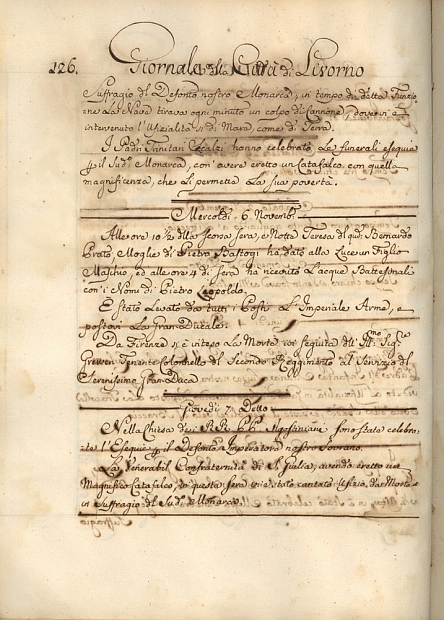 126. Giornale della Città di Livorno
Suffragio del Defonto nostro Monarca, in tempo di detta Funzio
ne La Nave tirava ogni minuto un colpo di Cannone, dove vi è
intervenuto l'Ufizialità sì di Mare, come di Terra.
I Padri Trinitari Scalzi hanno celebrato Le funerali esequie
p il Sud.º Monarca, con avere eretto un Catafalco con quella
magnificenza, che Li permette La sua povertà.
Mercoldì 6 Novemb.
Alle ore 10½ della scorsa Sera, e Notte Teresa del qu. Bernardo
Prato, Moglie di Pietro Bastogi ha dato alla Luce un Figlio
Maschio, ed alle ore 4 di Sera ha ricevuto L'acque Battesimali
con i Nomi di Pietro Leopoldo.
E stato Levato da tutti i Posti L'Imperiale Arme, e
postovi La Gran Ducale.
Da Firenze si è inteso La Morte ivi seguita dell' Ill.mo Sig.re
Tenente Colonnello del Secondo Reggimento al Servizio del
Serenissimo Gran Duca
Giovedì 7 Detto
Nella Chiesa de RR. PP. Agostiniani sono state celebra
te l'Esequie p il Defonto Imperatore nostro Sovrano.
La Venerabil Confraternita di S. Giulia, avendo eretto un
Magnifico Catafalco, in questa sera vi è stato cantato Ufizio da Morto
in Suffragio del Sud.º Monarca.